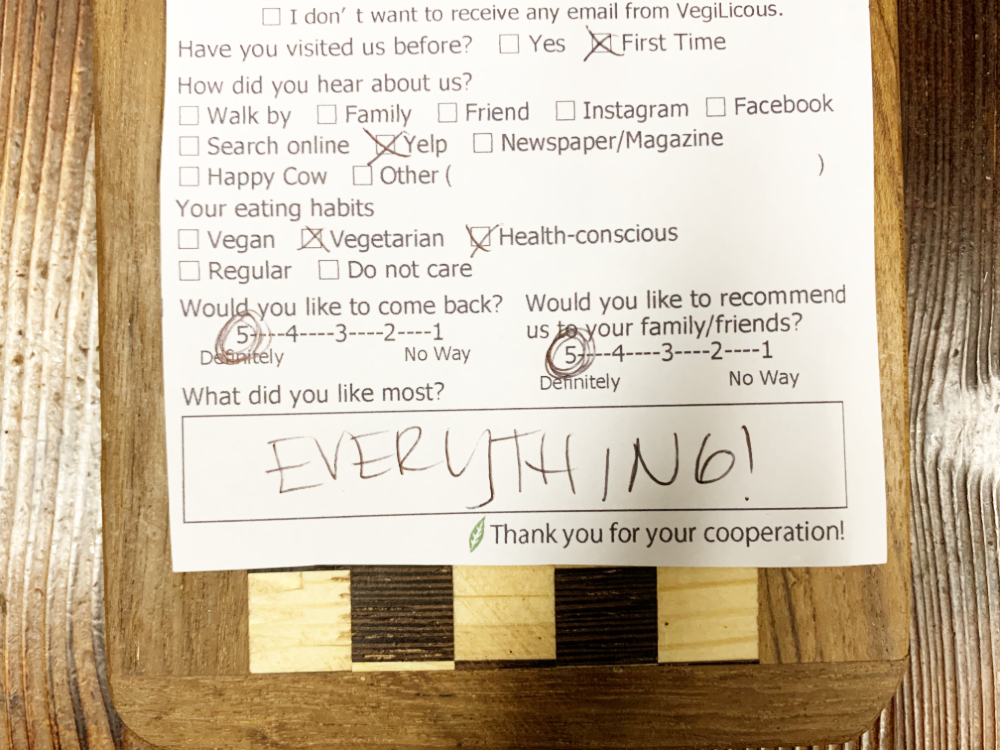 ☐ I don't want to receive any email from VegiLicous.
Have you visited us before? ☐ Yes ☒ First Time
How did you hear about us?
☐ Walk by ☐ Family ☐ Friend ☐ Instagram ☐ Facebook
☐ Search online ☒ Yelp ☐ Newspaper/Magazine
☐ Happy Cow ☐ Other ( )
Your eating habits
☐ Vegan ☒ Vegetarian ☒ Health-conscious
☐ Regular ☐ Do not care
Would you like to come back?
5----4----3----2----1
Definitely No Way
Would you like to recommend
us to your family/friends?
5----4----3----2----1
Definitely No Way
What did you like most?
EVERYTHING!
Thank you for your cooperation!